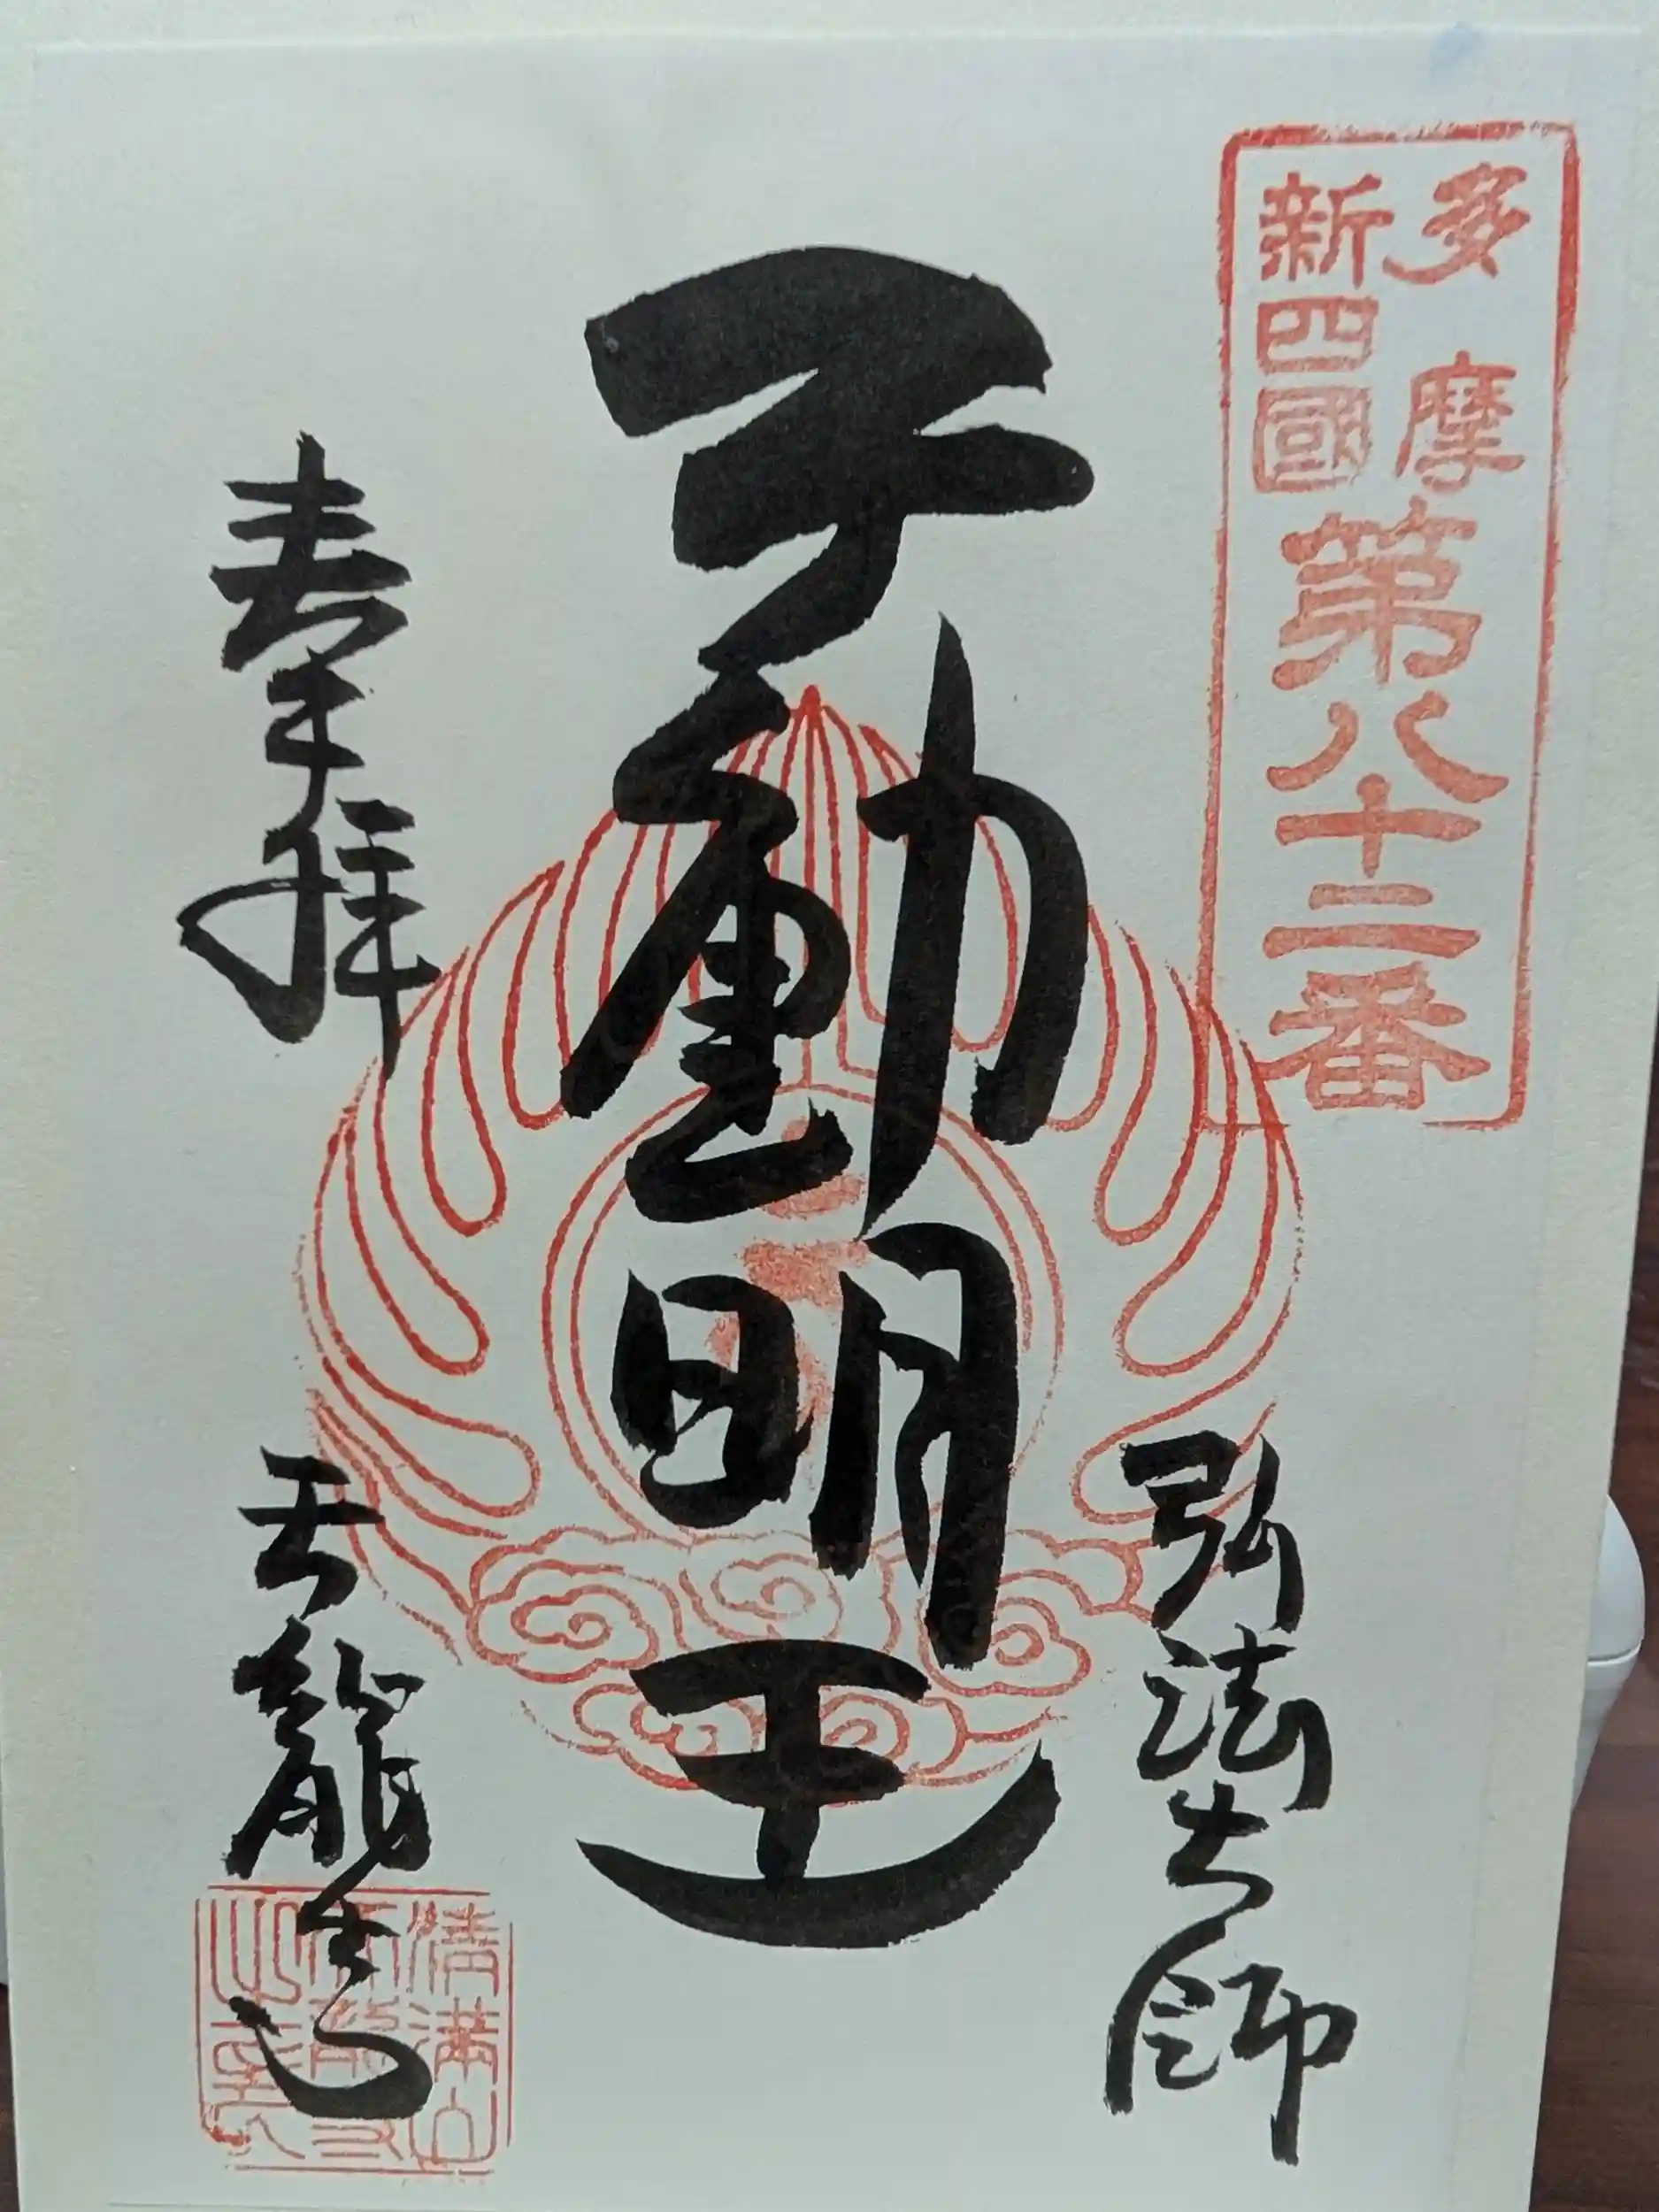 多摩
新四國
第八十二番
弘法大師
不動明王
奉拝
天龍寺
清満山